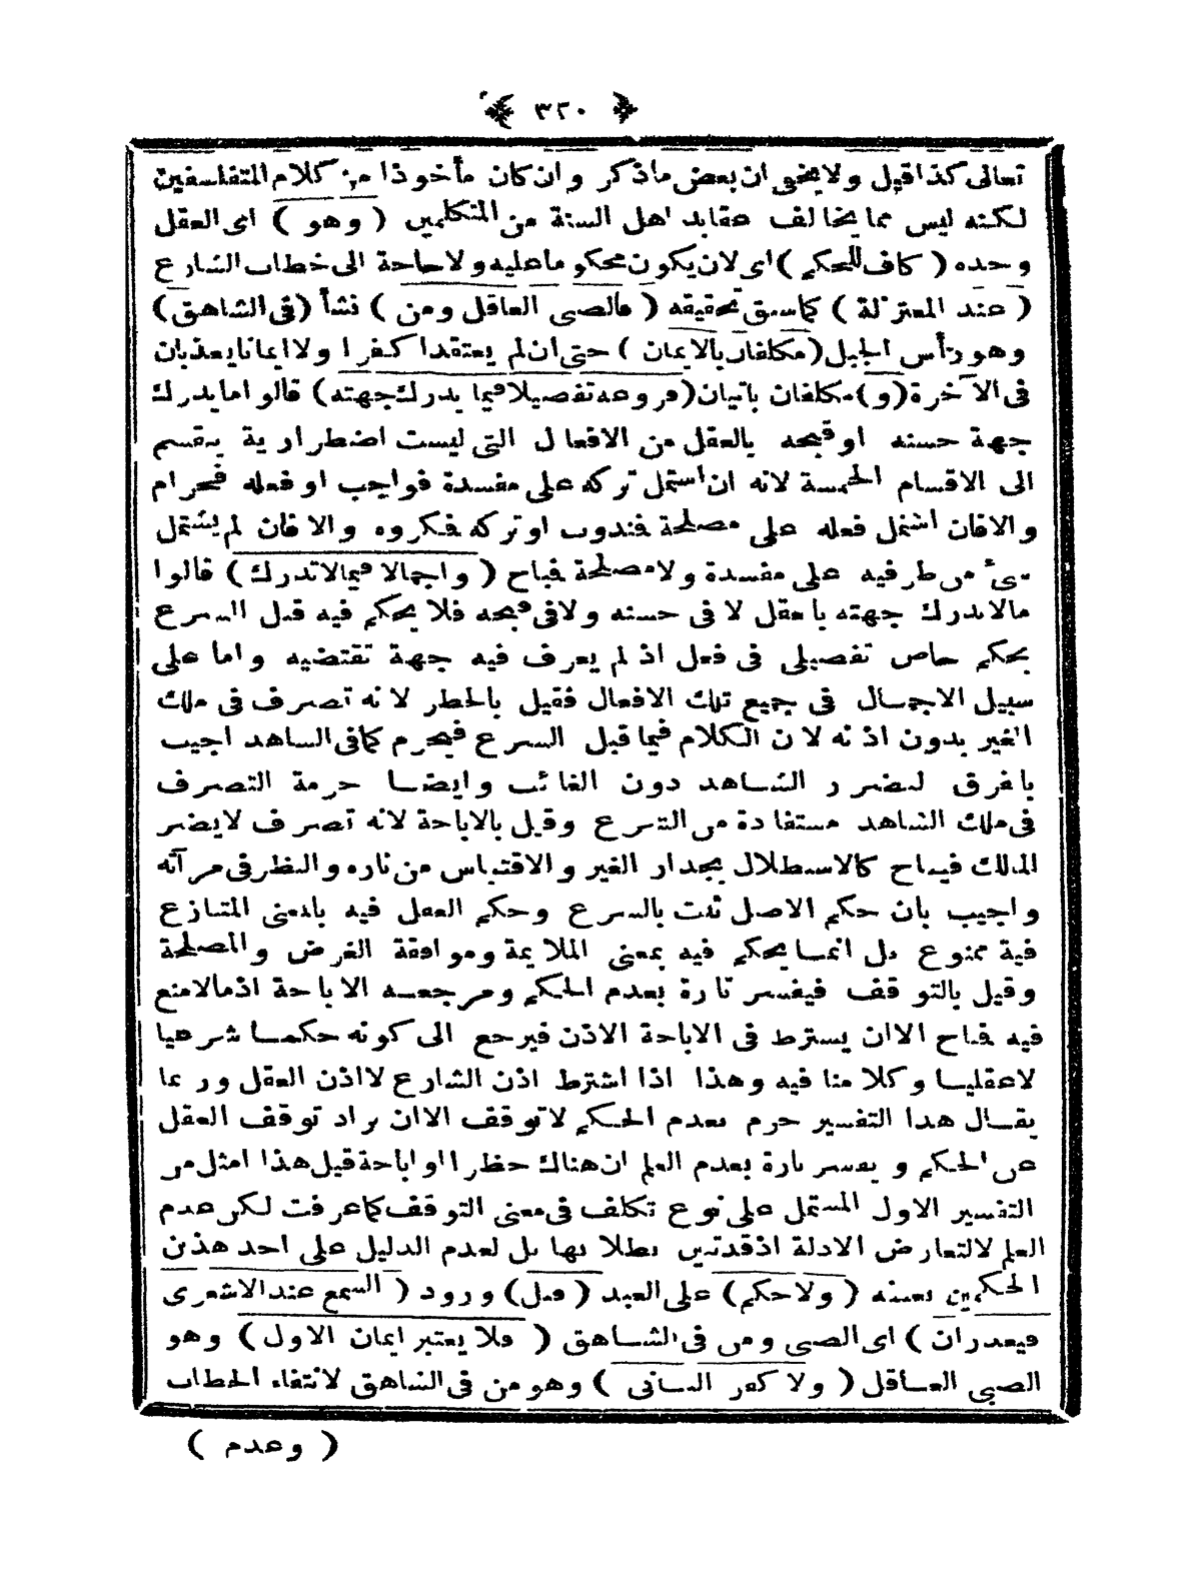 ﴿ ٣٢٠ ﴾
تعالى كذا قيل ولا يخفى ان بعض ما ذكر وان كان مأخوذا من كلام المتفلسفين
لكنه ليس مما يخالف عقايد اهل السنة من المتكلمين ( وهو ) اى العقل
وحده ( كاف للحكم ) اى لان يكون محكوما عليه ولا حاجة الى خطاب الشارع
( عند المعتزلة ) كما سبق تحقيقه ( فالصبى العاقل ومن ) نشأ ( فى الشاهق )
وهو رأس الجبل ( مكلفان بالايمان ) حتى ان لم يعتقدا كفرا ولا ايمانا يعذبان
فى الآخرة ( و ) مكلفان باتيان ( فروعه تفصيلا فيما يدرك جهته ) قالوا ما يدرك
جهة حسنه او قبحه بالعقل من الافعال التى ليست اضطرارية ينقسم
الى الاقسام الخمسة لانه ان اشتمل تركه على مفسدة فواجب او فعله فحرام
والا فان اشتمل فعله على مصلحة فندوب او تركه فمكروه والا فان لم يشتمل
شئ من طرفيه على مفسدة ولا مصلحة فباح ( واجمالا فيما لا تدرك ) قالوا
ما لا تدرك جهته بالعقل لا فى حسنه ولا فى قبحه فلا يحكم فيه قبل الشرع
بحكم خاص تفصيلى فى فعل اذ لم يعرف فيه جهة تقتضيه واما على
سبيل الاجمال فى جميع تلك الافعال فقيل بالحظر لانه تصرف فى ملك
الغير بدون اذنه لان الكلام فيما قبل الشرع فيحرم كما فى الشاهد اجيب
بالفرق لتضرر الشاهد دون الغائب وايضا حرمة التصرف
فى ملك الشاهد مستفادة من الشرع وقيل بالاباحة لانه تصرف لا يضر
المالك فيباح كالاستظلال بجدار الغير والاقتباس من ناره والنظر فى مرآته
واجيب بان حكم الاصل ثبت بالشرع وحكم العقل فيه بالمعنى المتنازع
فية ممنوع بل انما يحكم فيه بمعنى الملايمة وموافقة الغرض والمصلحة
وقيل بالتوقف فيفسر تارة بعدم الحكم ومرجعه الاباحة اذ ما لا منع
فيه فباح الا ان يشترط فى الاباحة الاذن فيرجع الى كونه حكما شرعيا
لا عقليا وكلامنا فيه وهذا اذا اشترط اذن الشارع لا اذن العقل وربما
يقال هذا التفسير جزم بعدم الحكم لا توقف الا ان يراد توقف العقل
عن الحكم ويفسر تارة بعدم العلم ان هناك حظرا او اباحة قيل هذا امثل من
التفسير الاول المشتمل على نوع تكلف فى معنى التوقف كما عرفت لكن عدم
العلم لا لتعارض الادلة اذ قد تبين بطلانها بل لعدم الدليل على احد هذين
الحكمين بعينه ( ولا حكم ) على العبد ( قبل ) ورود ( السمع عند الاشعرى
فيعذران ) اى الصبى ومن فى الشاهق ( فلا يعتبر ايمان الاول ) وهو
الصبى العاقل ( ولا كفر الثانى ) وهو من فى الشاهق لانتفاء الخطاب
( وعدم )